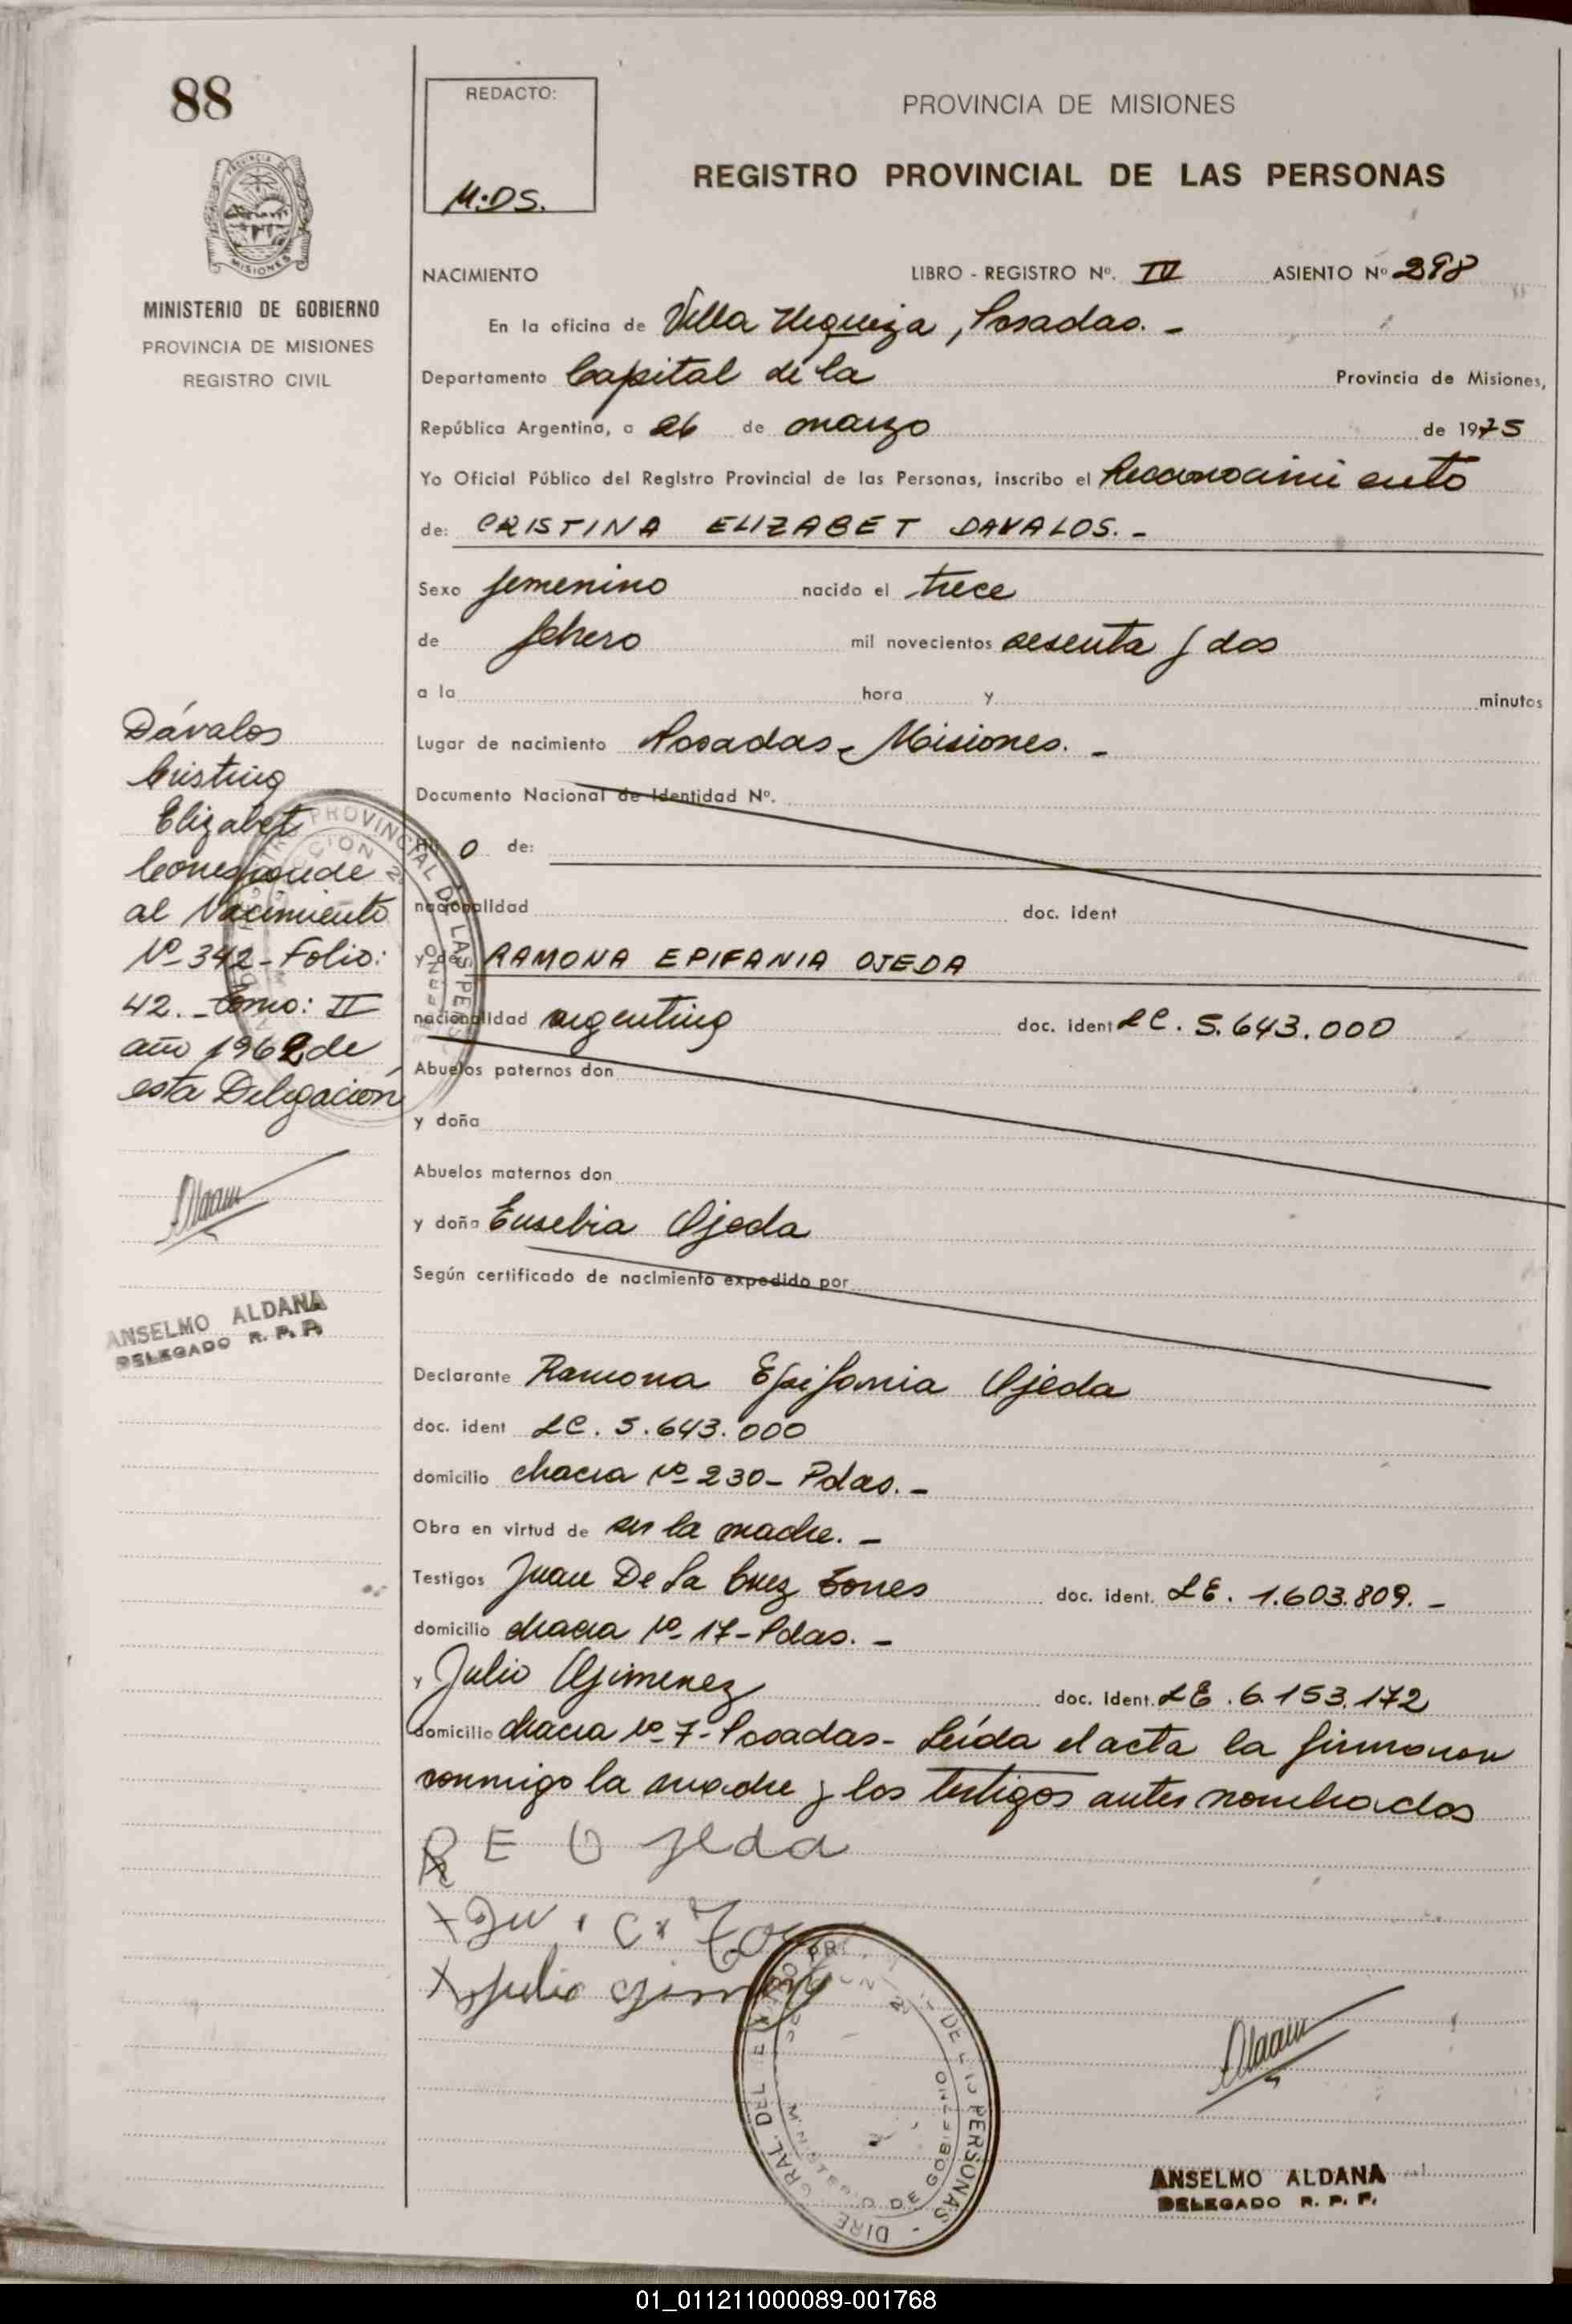 88
REDACTO:
M.DS.
PROVINCIA DE MISIONES
REGISTRO PROVINCIAL DE LAS PERSONAS
MISIONES
MINISTERIO DE GOBIERNO
PROVINCIA DE MISIONES
REGISTRO CIVIL
NACIMIENTO LIBRO - REGISTRO Nº. IV ASIENTO Nº 298
En la oficina de Villa Urquiza, Posadas. -
Departamento Capital de la Provincia de Misiones,
República Argentina, a 26 de marzo de 1975
Yo Oficial Público del Registro Provincial de las Personas, inscribo el Reconocimiento
de: CRISTINA ELIZABET DAVALOS. -
Sexo femenino nacido el trece
de febrero mil novecientos sesenta y dos
a la hora y minutos
Lugar de nacimiento Posadas - Misiones. -
Documento Nacional de Identidad Nº.
o de:
nacionalidad doc. ident
y de: RAMONA EPIFANIA OJEDA
nacionalidad argentina doc. ident LC. 5.643.000
Abuelos paternos don
y doña
Abuelos maternos don
y doña Eusebia Ojeda
Según certificado de nacimiento expedido por
Declarante Ramona Epifania Ojeda
doc. ident LC. 5.643.000
domicilio chacra Nº 230 - Pdas. -
Obra en virtud de ser la madre. -
Testigos Juan De La Cruz Torres doc. ident. LE. 1.603.809. -
domicilio chacra Nº 17 - Pdas. -
y Julio Gimenez doc. Ident. LE. 6.153.172
domicilio chacra Nº 7 - Posadas - Leída el acta la firmaron
conmigo la madre y los testigos antes nombrados
R E Ojeda
Julio
ANSELMO ALDANA
DELEGADO R. P. P.
Dávalos
Cristina
Elizabet
Corresponde
al Nacimiento
Nº 342 - Folio:
42. - Tomo: II
año 1962 de
esta Delegación
ANSELMO ALDANA
DELEGADO R. P. P.
PROVINCIAL DE LAS PERS
DIRE GRAL. DEL PERSONAS
MINISTERIO DE GOBIERNO
01_011211000089-001768